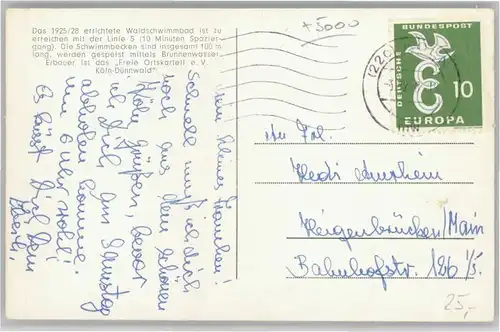 Das 1925/28 errichtete Waldschwimmbad ist zu
erreichen mit der Linie 5 (10 Minuten Spazier-
gang). Die Schwimmbecken sind insgesamt 100 m
lang, werden gespeist mittels Brunnenwasser.
Erbauer ist das „Freie Ortskartell e. V.
Köln-Dünnwald"
+5000
DEUTSCHE
BUNDESPOST
10
EUROPA
(22c)
Mein kleines Frauchen!
Schnell muß ich dich
noch aus dem schönen
Köln grüßen, bevor
ich Dich am Samstag
abholen komme.
um 6 Uhr
Es küsst Dich Dein
An Frl.
Hedi
Heigenbrücken/Main
Bahnhofstr. 126 1/5.
25,-